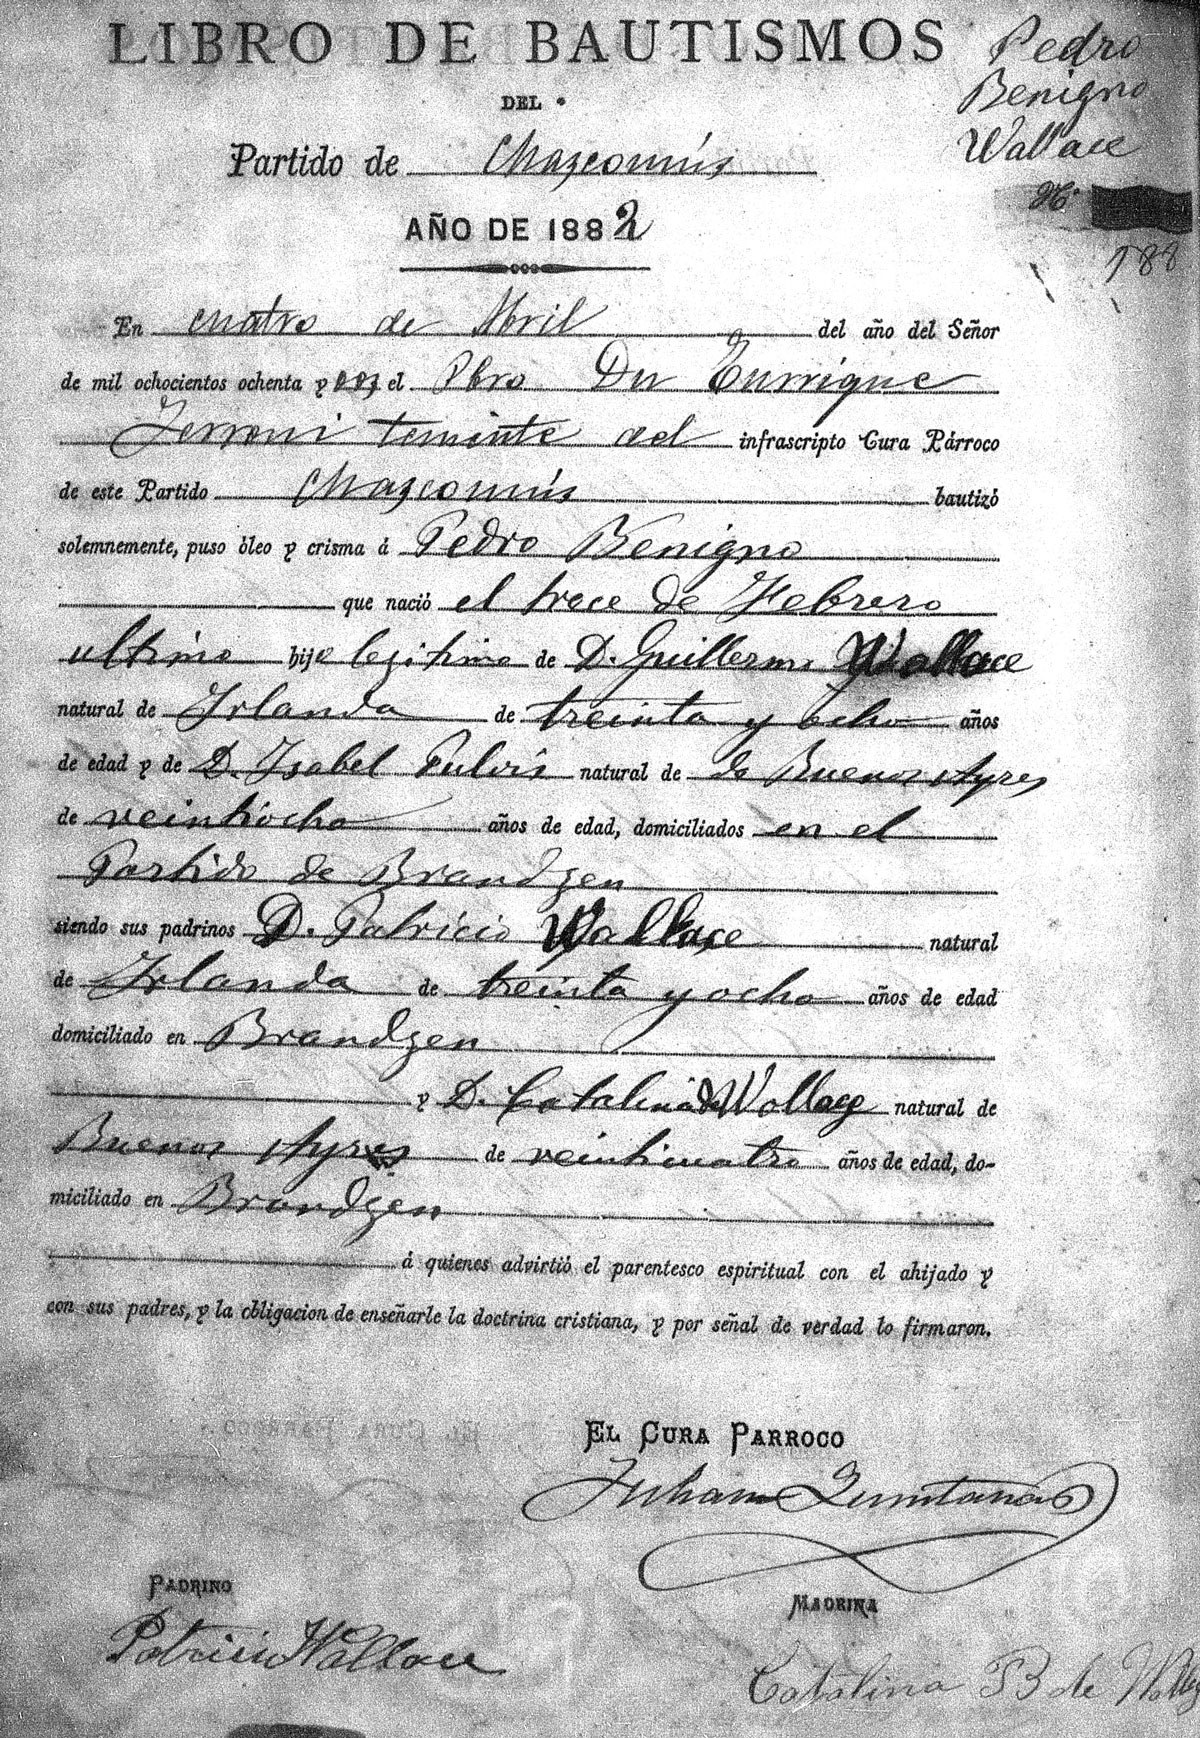 LIBRO DE BAUTISMOS
DEL
Partido de Chascomús
AÑO DE 1882
Pedro
Benigno
Wallace
Nº
188
En cuatro de Abril del año del Señor
de mil ochocientos ochenta y dos el Pbro Dn Enrrique
Ferroni teniente del infrascripto Cura Párroco
de este Partido Chascomús bautizó
solemnemente, puso óleo y crisma á Pedro Benigno
que nació el trece de Febrero
ultimo hijo legitimo de D. Guillermo Wallace
natural de Irlanda de treinta y ocho años
de edad y de D. Isabel natural de de Buenos Ayres
de veintiocho años de edad, domiciliados en el
Partido de Brandzen
siendo sus padrinos D. Patricio Wallace natural
de Irlanda de treinta y ocho años de edad
domiciliado en Brandzen
y D. Catalina de Wallace natural de
Buenos Ayres de veinticuatro años de edad, do-
miciliado en Brandzen
á quienes advirtió el parentesco espiritual con el ahijado y
con sus padres, y la obligacion de enseñarle la doctrina cristiana, y por señal de verdad lo firmaron.
EL CURA PARROCO
Quintana
PADRINO
MADRINA
Patricio Wallace
Catalina B de Wallace